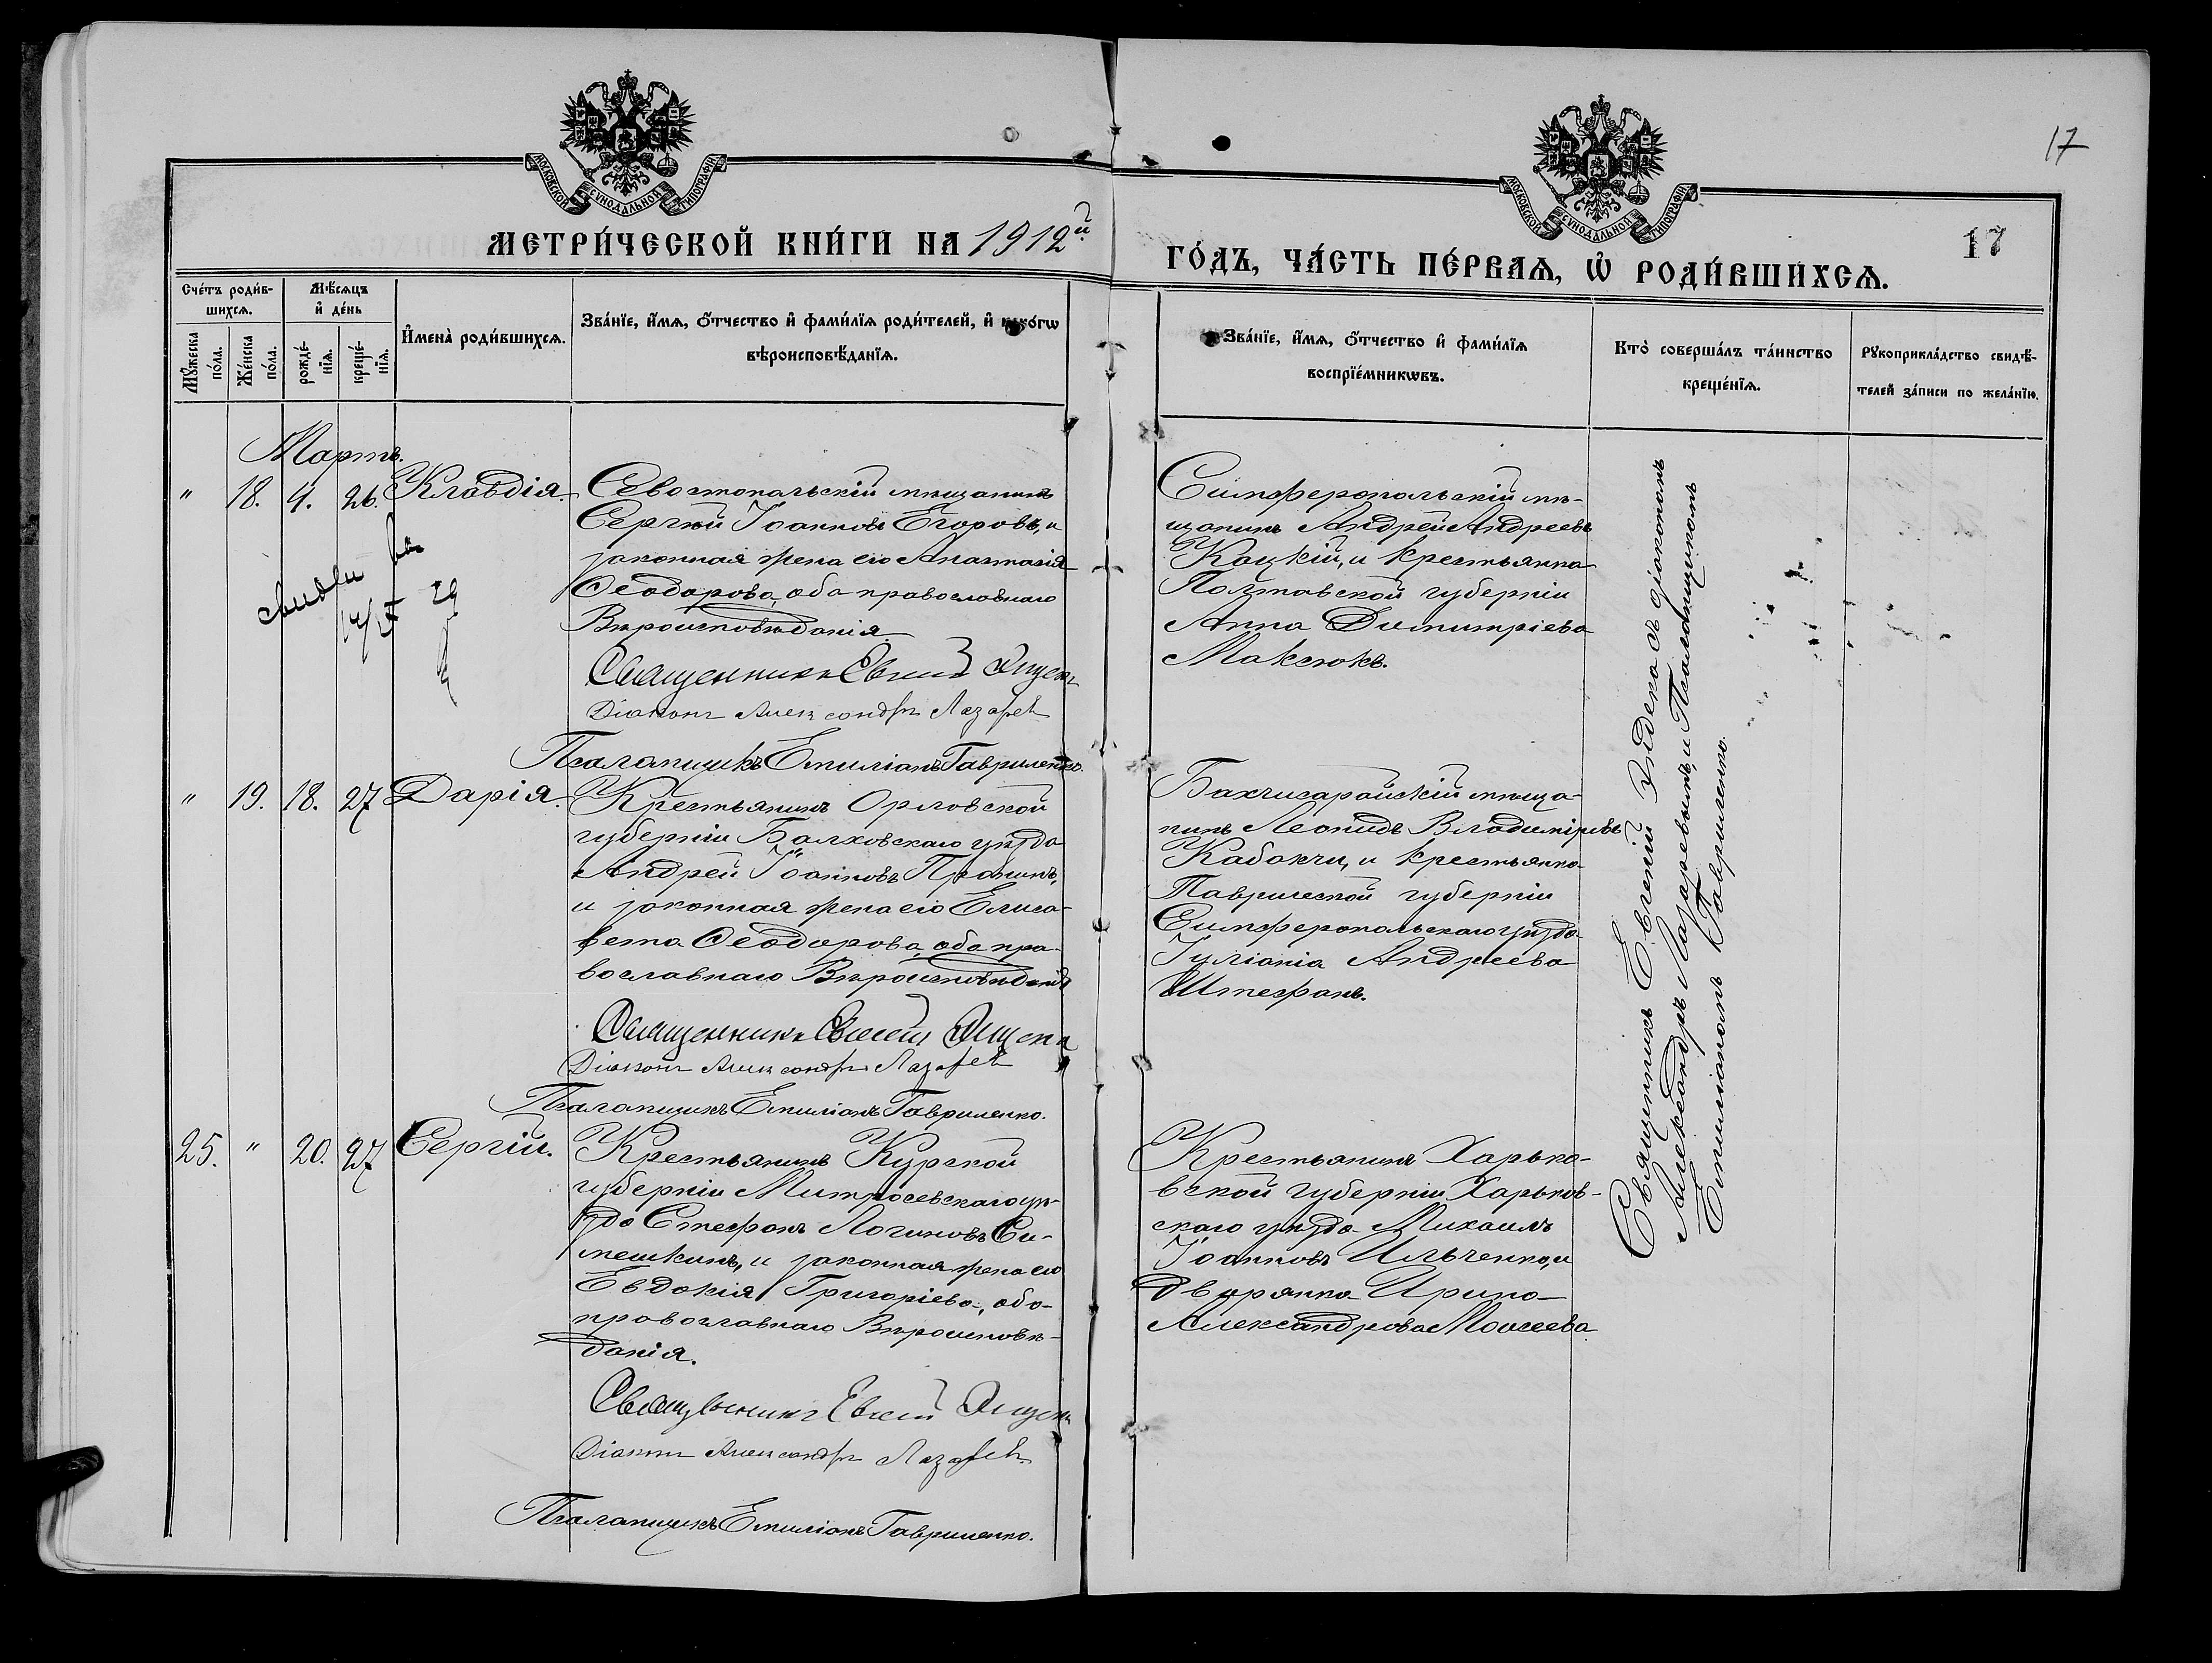 17
МОСКОВСКОЙ СѴНОДАЛЬНОЙ ТИПОГРАФІИ
МОСКОВСКОЙ СѴНОДАЛЬНОЙ ТИПОГРАФІИ
МЕТРИ́ЧЕСКОЙ КНИ́ГИ НА 1912й
ГО́ДЪ, ЧА́СТЬ ПЕ́РВАѦ, Ѽ РОДИ́ВШИХСѦ.
17
Сче́тъ роди́в-
шихсѧ.
Мꙋ́жеска по́ла.
Же́нска по́ла.
Мѣ́сѧцъ
и҆ де́нь
рожде́-
нїѧ.
креще́-
нїѧ.
И҆мена̀ роди́вшихсѧ.
Зва́нїе, и҆́мѧ, ѻ҆́тчество и҆ фами́лїѧ роди́телей, и҆ како́гѡ
вѣроисповѣ́данїѧ.
Зва́нїе, и҆́мѧ, ѻ҆́тчество и҆ фами́лїѧ
воспрїе́мникѡвъ.
Кто̀ соверша́лъ та́инство
креще́нїѧ.
Рꙋкоприкла́дство свидѣ́-
телей за́писи по жела́нїю.
Мартъ.
" 18. 4. 26. Клавдія.
Севастопольскій мѣщанинъ
Сергѣй Іоанновъ Егоровъ, и
законная жена его Анастасія
Ѳеодорова, оба православнаго
Вѣроисповѣданія.
Священникъ Евгеній
Діаконъ Александръ Лазаревъ
Псаломщикъ Емиліанъ Гавриленко.
Симферопольскій мѣ-
щанинъ Андрей Андреевъ
Кацкій, и крестьянка
Полтавской губерніи
Анна Димитріева
Максюкъ.
" 19. 18. 27 Дарія.
Крестьянинъ Орловской
губерніи Балховскаго уѣзда
Андрей Іоанновъ Пронинъ,
и законная жена его Елиса-
вета Ѳеодорова, оба пра-
вославнаго Вѣроисповѣданія
Священникъ Евгеній
Діаконъ Александръ Лазаревъ
Псаломщикъ Емиліанъ Гавриленко.
Бахчисарайскій мѣща-
нинъ Леонидъ Владиміровъ
Кабакчи, и крестьянка
Таврической губерніи
Симферопольскаго уѣзда
Іуліанія Андреева
Штефанъ.
25. " 20. 27 Сергій.
Крестьянинъ Курской
губерніи Митросевскаго уѣ-
зда Стефанъ Логиновъ Си-
мешкинъ, и законная жена его
Евдокія Григоріева, оба
православнаго Вѣроисповѣ-
данія.
Священникъ Евгеній
Діаконъ Александръ Лазаревъ
Псаломщикъ Емиліанъ Гавриленко.
Крестьянинъ Харько-
вской губерніи Харьков-
скаго уѣзда Михаилъ
Іоанновъ Ильченко, и
дворянка Ирина
Александрова Моисеева.
Священникъ Евгеній съ діакономъ
Александръ Лазаревымъ, и Псаломщикомъ
Емиліаномъ Гавриленко.